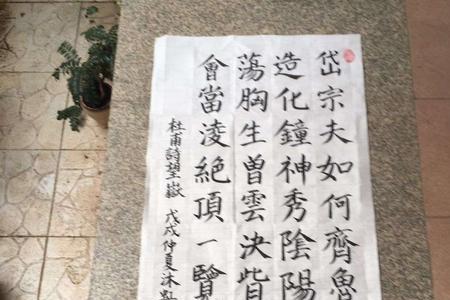 岱宗夫如何齊魯
造化鐘神秀陰陽
蕩胸生曾雲決眥
會當凌絕頂一覽
杜甫詩望嶽 戊戌仲夏沐